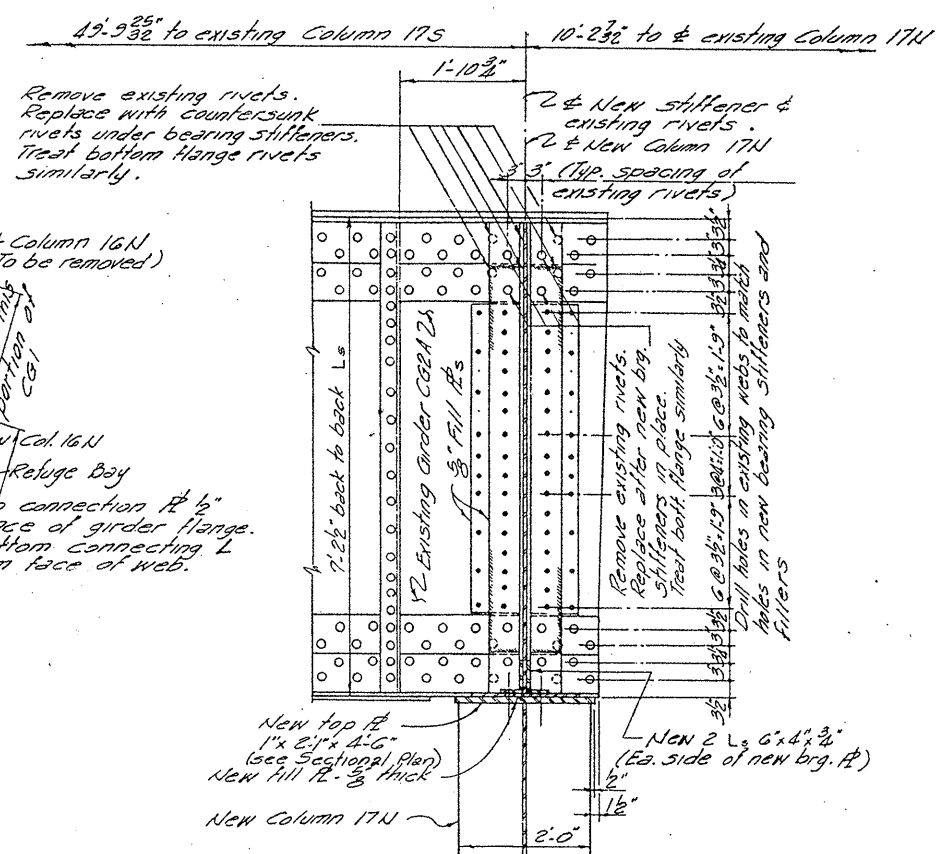 49'-9 25/32" to existing Column 17S
10'-2 7/32" to ℄ existing Column 17N
1'-10 3/4"
Remove existing rivets.
Replace with countersunk
rivets under bearing stiffeners.
Treat bottom flange rivets
similarly.
℄ New stiffener &
existing rivets.
℄ New Column 17N
3" 3" (Typ. spacing of
existing rivets)
Column 16N
To be removed)
this
portion of
CG1
Col. 16N
Refuge Bay
connection ℞ 1/2"
face of girder flange.
bottom connecting L
face of web.
7'-2 1/2" back to back Ls
Existing Girder CG2A
5/8" Fill ℞s
Remove existing rivets.
Replace after new brg.
stiffeners in place.
Treat bott. flange similarly
6 @ 3 1/2" = 1'-9"
6 @ 3 1/2" = 1'-9"
Drill holes in existing webs to match
holes in new bearing stiffeners and
fillers
New top ℞
1" x 2'-1" x 4'-6"
(see Sectional Plan)
New fill ℞ - 5/8" thick
New 2 Ls 6" x 4" x 3/4"
(Ea. side of new brg. ℞)
1/2"
1 1/2"
New Column 17N
2'-0"